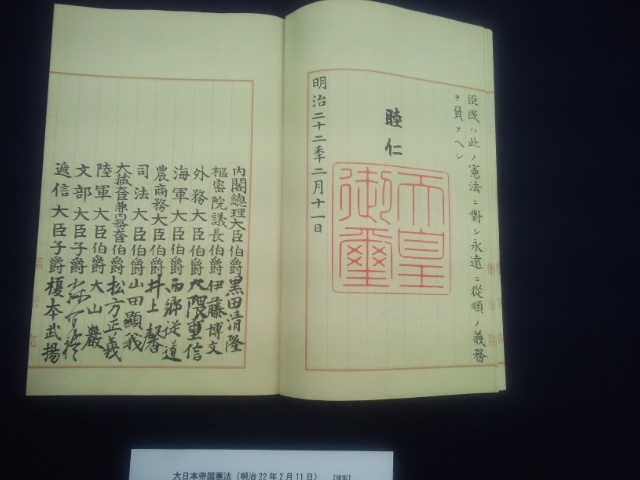 臣民ハ此ノ憲法ニ對シ永遠ニ從順ノ義務
ヲ負フヘシ
睦仁
天皇
御璽
明治二十二年二月十一日
内閣總理大臣伯爵黒田清隆
樞密院議長伯爵伊藤博文
外務大臣伯爵大隈重信
海軍大臣伯爵西郷從道
農商務大臣伯爵井上馨
司法大臣伯爵山田顯義
大藏大臣兼内務大臣伯爵松方正義
陸軍大臣伯爵大山巖
文部大臣子爵森有禮
遞信大臣子爵榎本武揚
大日本帝国憲法（明治22年2月11日）　【複製】